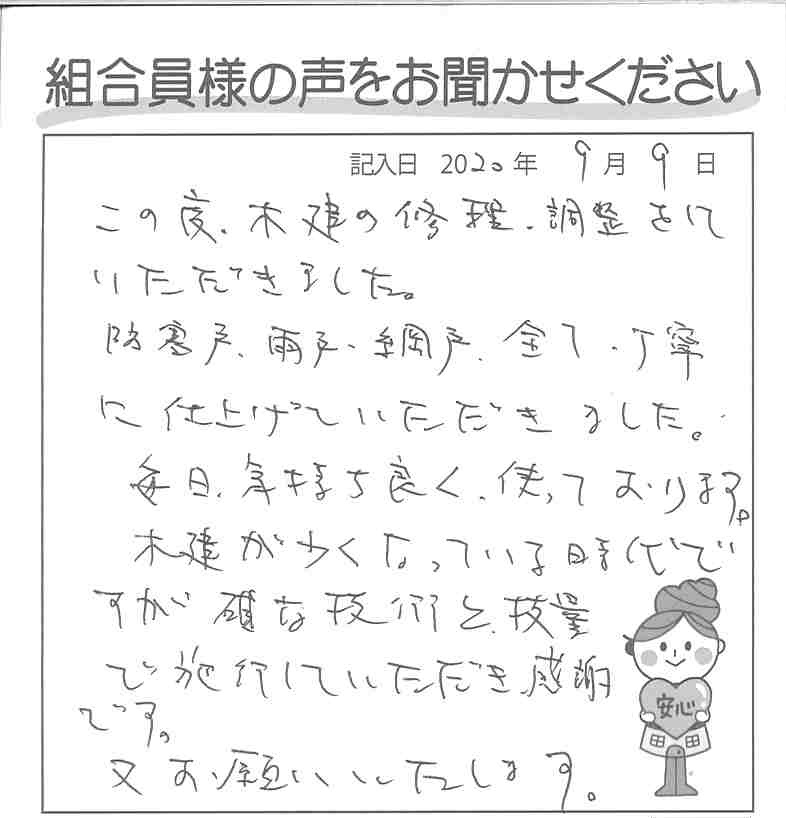 組合員様の声をお聞かせください
記入日 2020年 9月 9日
この度、木建の修理、調整をして
いただきました。
防寒戸、雨戸、網戸、全て、丁寧
に仕上げていただきました。
毎日、気持ち良く、使っております。
木建が少くなっている時代で
すが確な技術と、技量
で施行していただき感謝
です。
又お願いいたします。
安心